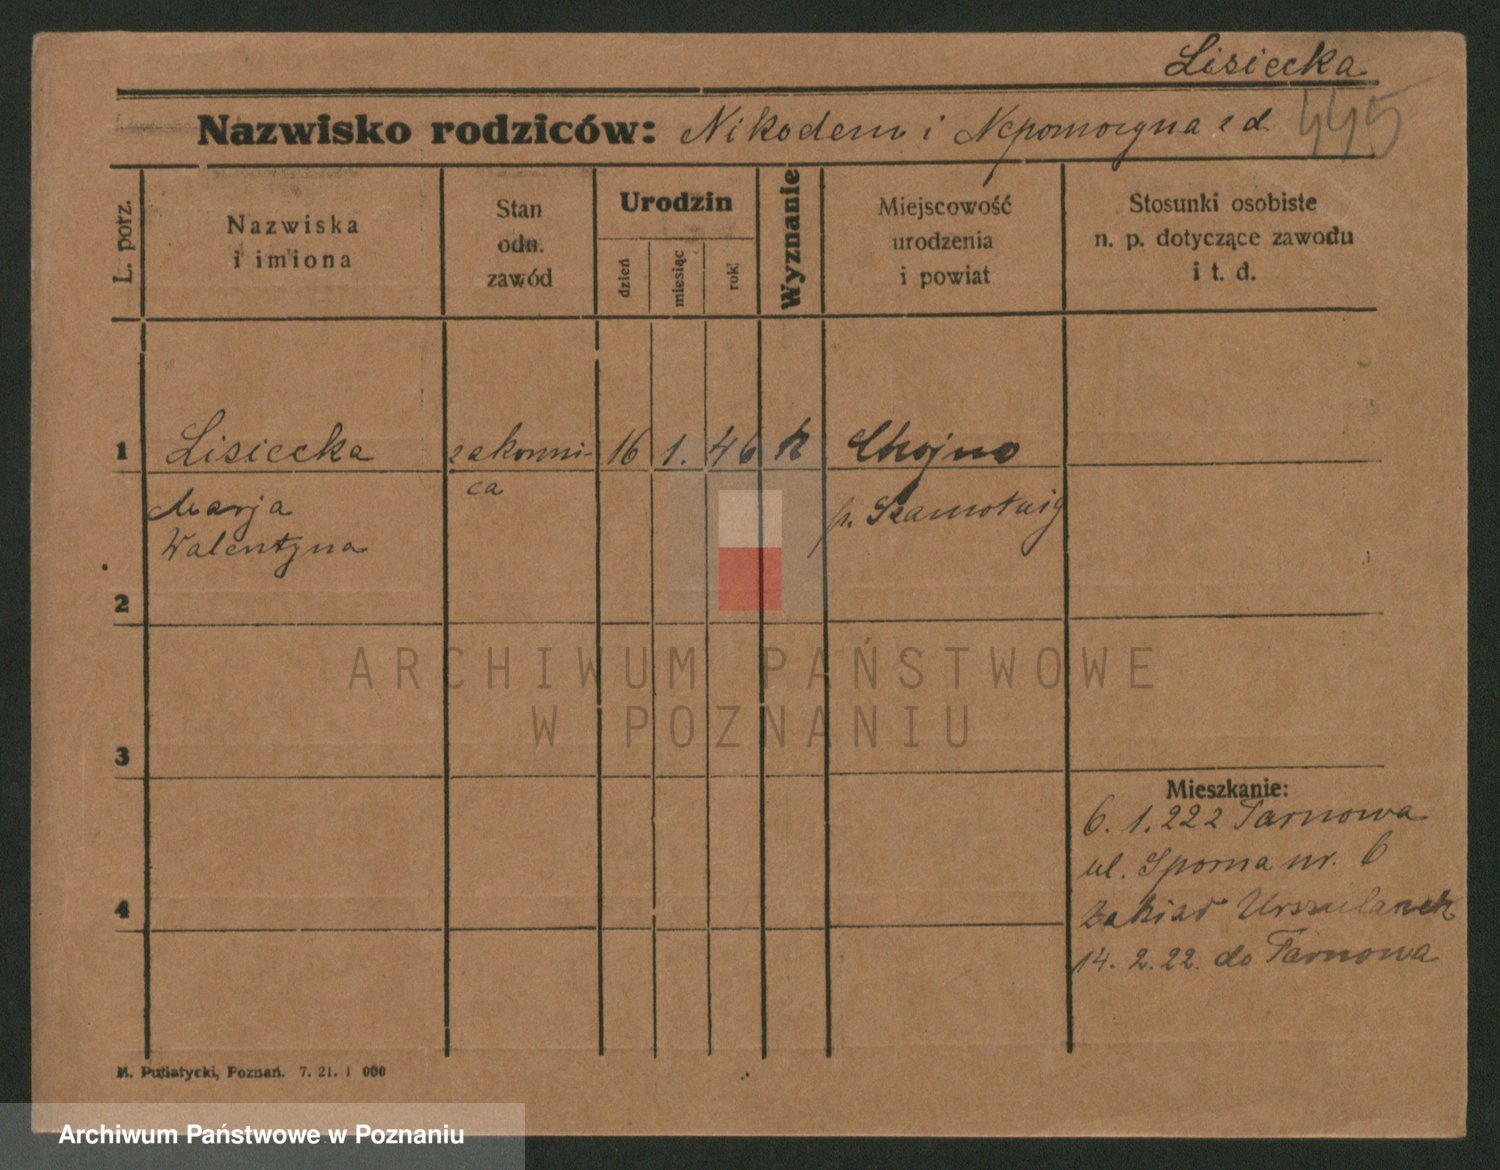 Lisiecka
Nazwisko rodziców: Nikodem i Nepomocyna z d. 445
L. porz.
Nazwiska
i imiona
Stan
odn.
zawód
Urodzin
dzień
miesiąc
rok
Wyznanie
Miejscowość
urodzenia
i powiat
Stosunki osobiste
n. p. dotyczące zawodu
i t. d.
1 Lisiecka zakonni- 16 1. 46 k Chojno
ca
Marja p. Szamotuły
Walentyna
2
ARCHIWUM PAŃSTWOWE
W POZNANIU
3
Mieszkanie:
6. 1. 222 Tarnowa
ul. Sporna nr. 6
Zakład Urszulanek
4
14. 2. 22. do Tarnowa
M. Putiatycki, Poznań. 7. 21. 1 000
Archiwum Państwowe w Poznaniu